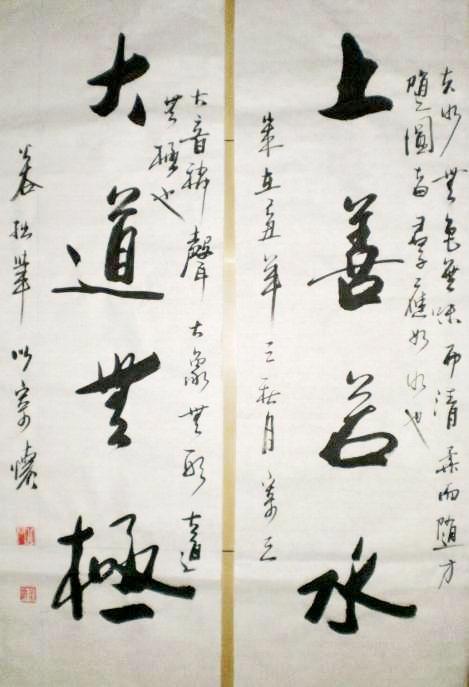 夫水無色無味而清柔而隨方
隨圓君子應如水也
上善若水
丑年三秋月
大音稀聲大象無形大道
無極也
大道無極
拙筆以寄懷